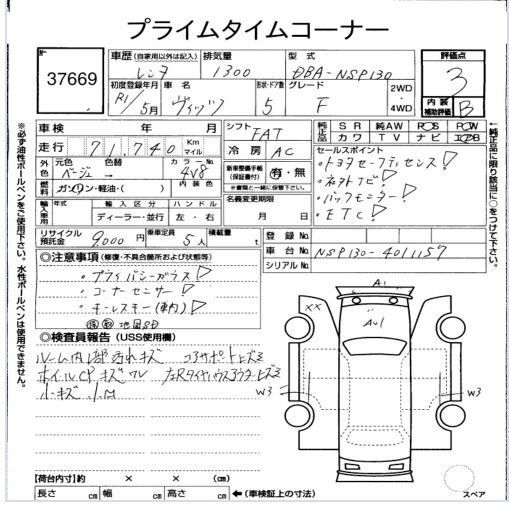 プライムタイムコーナー
37669
車歴(自家用以外は記入) 排気量 型式
レンタ 1300 DBA-NSP130
初度登録年月 車名 形状・ドア数 グレード
R1/5月 ヴィッツ 5 F 2WD・4WD
評価点
3
内装補助評価 B
車検 年 月
走行 71,740 Km マイル
シフト FAT
冷房 AC
純正品 SR 純AW PS PW
純正品 カワ TV ナビ エアB
外色 元色 色替 カラーNo.
ベージュ → 4V8
燃料 ガソリン・軽油・( ) 内装色
新車整備手帳(保証書付) 有・無
※書類と一緒に保管下さい。
名義変更期限
月 日
セールスポイント
・トヨタセーフティセンス!
・ネオトナビ!
・バックモニター!
・ETC!
輸入車用 輸入区分 ハンドル
ディーラー・並行 左・右
リサイクル預託金 9,000円 乗車定員 5人 積載量 t
登録No.
車台No. NSP130-4011157
シリアルNo.
◎注意事項(修復・不具合箇所および状態等)
・プライバシーガラス!
・コーナーセンサー!
・キーレスキー(車内)!
◎検査員報告(USS使用欄)
ルーム内1部汚れキズ コアサポートヒズミ
ホイルCPキズワレ 左Rタイヤハウスアウターヒズミ
小キズ
A1
XX
AU1
W3
W3
【荷台内寸】約 × × (cm)
長さ cm 幅 cm 高さ cm ←(車検証上の寸法)
スペア
※必ず油性ボールペンをご使用下さい。水性ボールペンは使用できません。
←純正品に限り該当に○をつけて下さい。